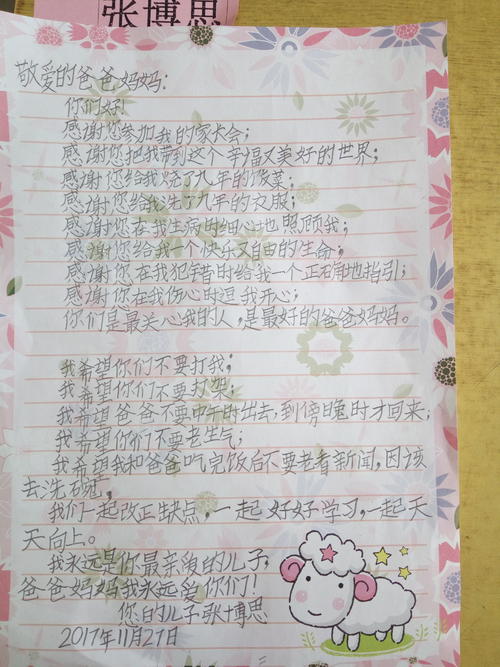 张博思
敬爱的爸爸妈妈:
你们好!
感谢您参加我的家长会;
感谢您把我带到这个幸福又美好的世界;
感谢您给我烧了九年的饭菜;
感谢您给我洗了九年的衣服;
感谢您在我生病时细心地照顾我;
感谢您给我一个快乐又自由的生命;
感谢您在我犯错时给我一个正确地指引;
感谢你在我伤心时逗我开心;
你们是最关心我的人,是最好的爸爸妈妈。
我希望你们不要打我;
我希望你们不要打架;
我希望爸爸不要中午时出去,到傍晚时才回来;
我希望你们不要老生气;
我希望我和爸爸吃完饭后不要老看新闻,因该
去洗碗,
我们一起改正缺点,一起好好学习,一起天
天向上。
我永远是你最亲爱的儿子,
爸爸妈妈我永远爱你们!
您的儿子张博思
2017年11月27日